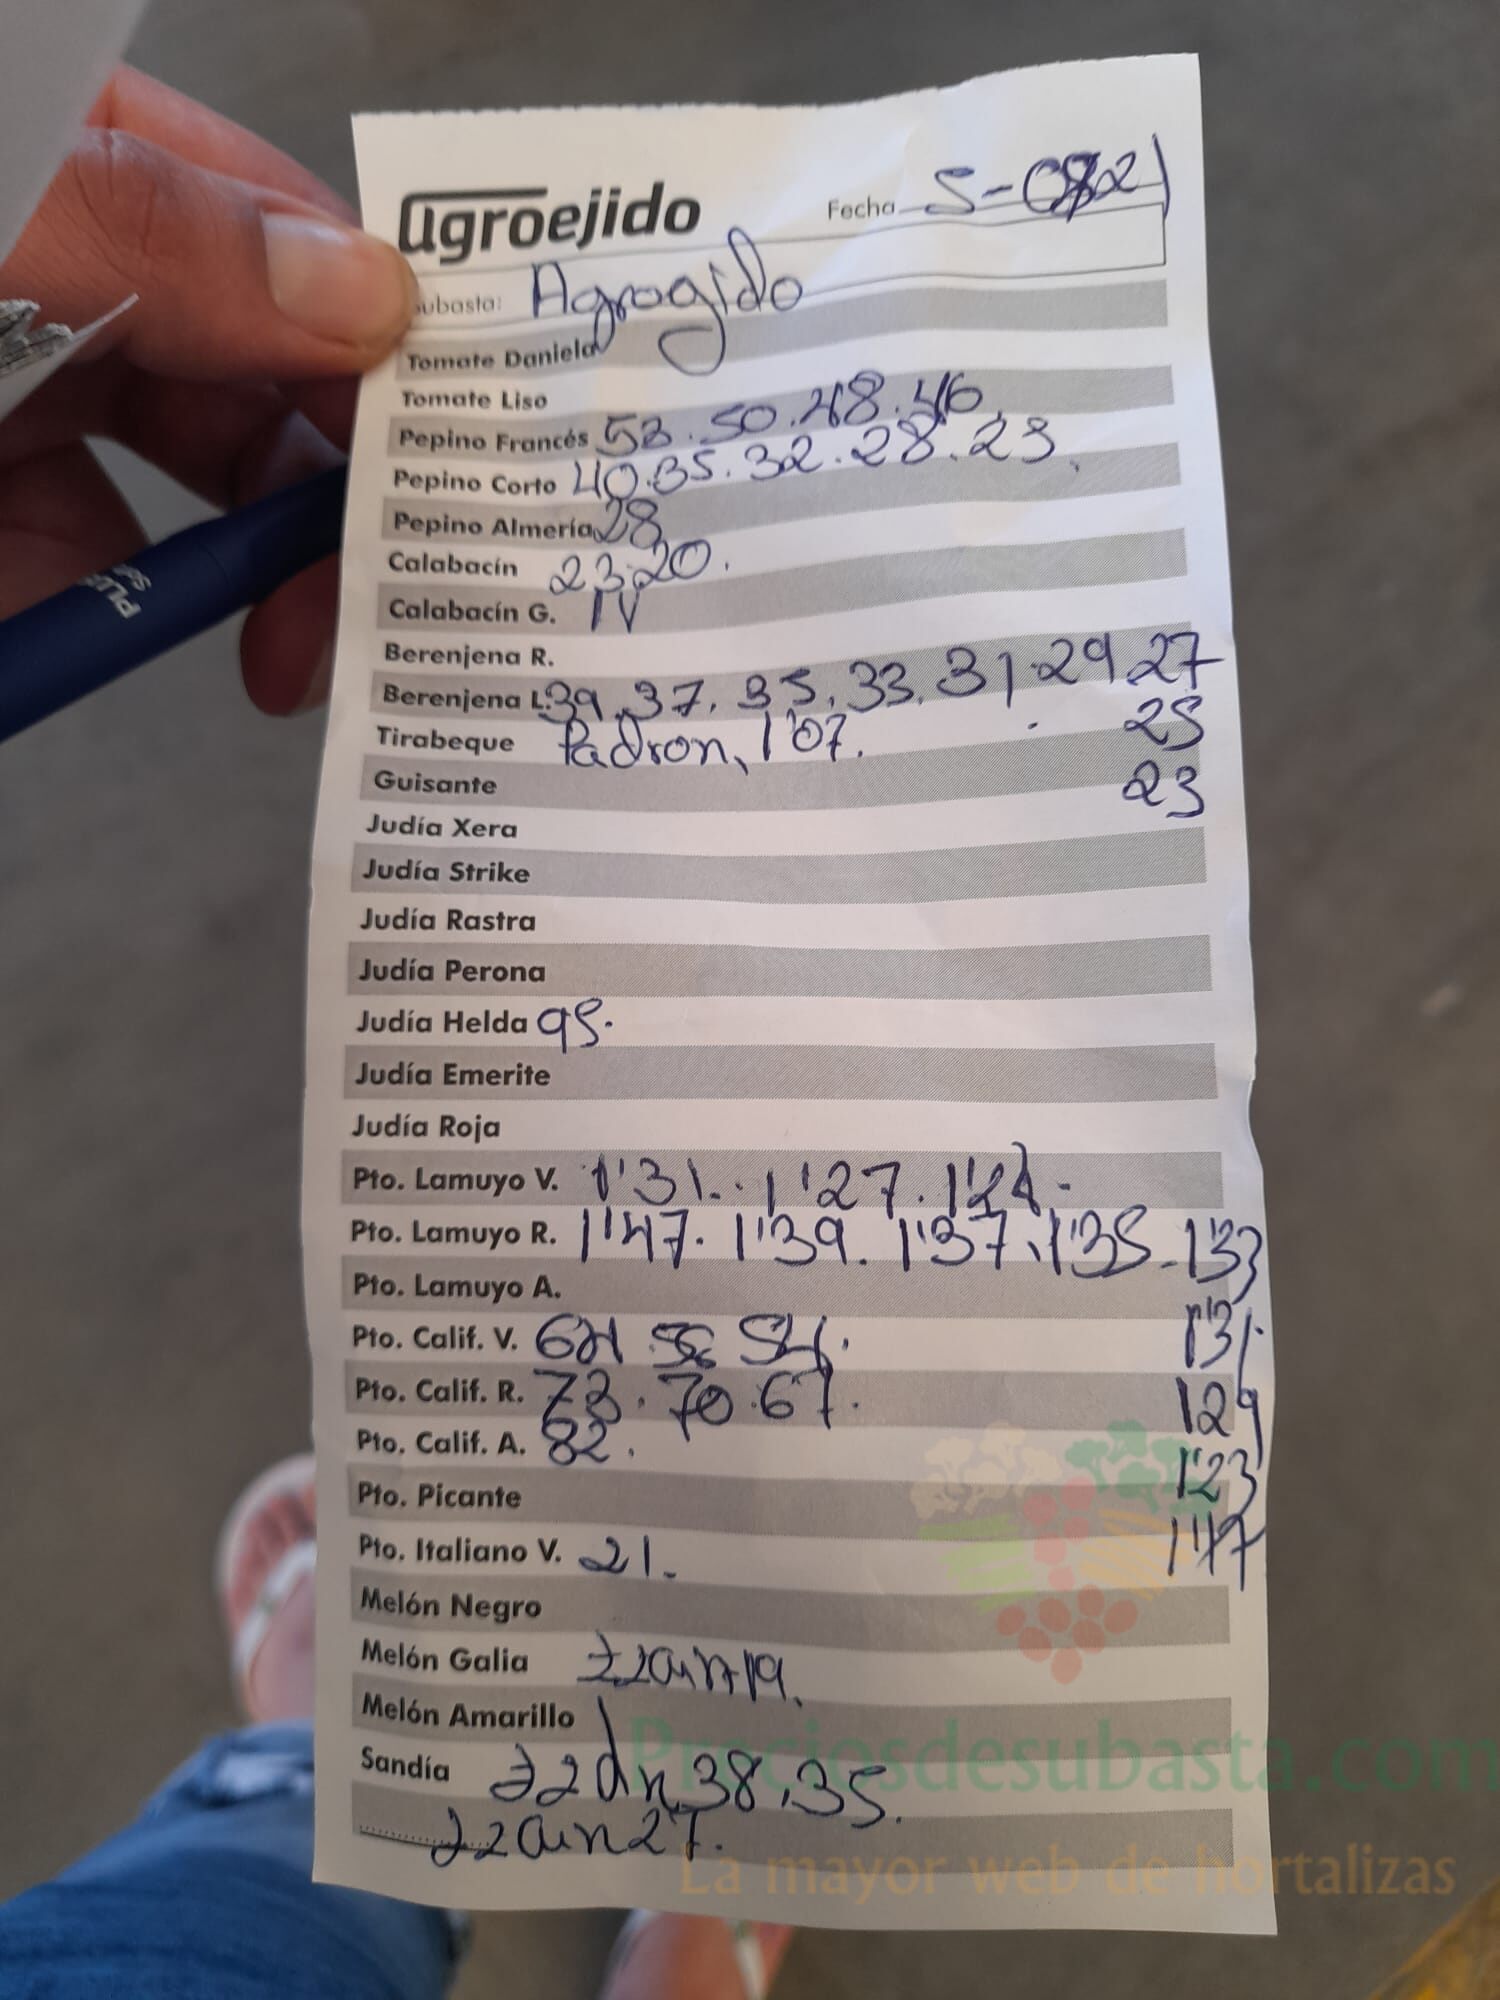 agroejido
Fecha 5-0821
Subasta: Agroejido
Tomate Daniela
Tomate Liso
Pepino Francés 53. 50. 48. 46.
Pepino Corto 40. 35. 32. 28. 23.
Pepino Almería 28
Calabacín 23 20.
Calabacín G.
Berenjena R.
Berenjena L. 39. 37. 35. 33. 31. 29 27
25
Tirabeque Padron, 1'07.
Guisante 23
Judía Xera
Judía Strike
Judía Rastra
Judía Perona
Judía Helda 95.
Judía Emerite
Judía Roja
Pto. Lamuyo V. 1'31. 1'27.
Pto. Lamuyo R. 1'47. 1'39. 1'37. 1'35. 1'33
Pto. Lamuyo A.
1'31.
Pto. Calif. V. 64. 56 54.
Pto. Calif. R. 73. 70. 67.
129
Pto. Calif. A. 82.
1'23
Pto. Picante
Pto. Italiano V. 21.
1'17
Melón Negro
Melón Galia 19.
Melón Amarillo
Sandía 38. 35.
27.
PLUS
Preciosdesubasta.com
La mayor web de hortalizas